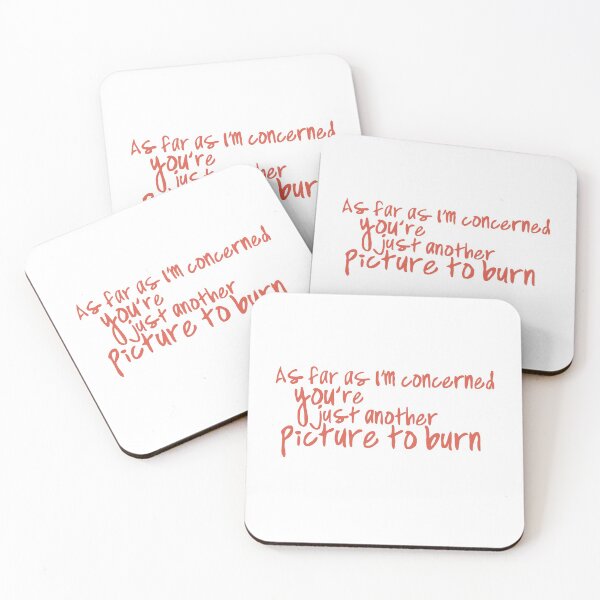 As far as I'm concerned
you're
just another
burn
As far as I'm concerned
you're
just another
picture to burn
As far as I'm concerned
you're
just another
picture to burn
As far as I'm concerned
you're
just another
picture to burn